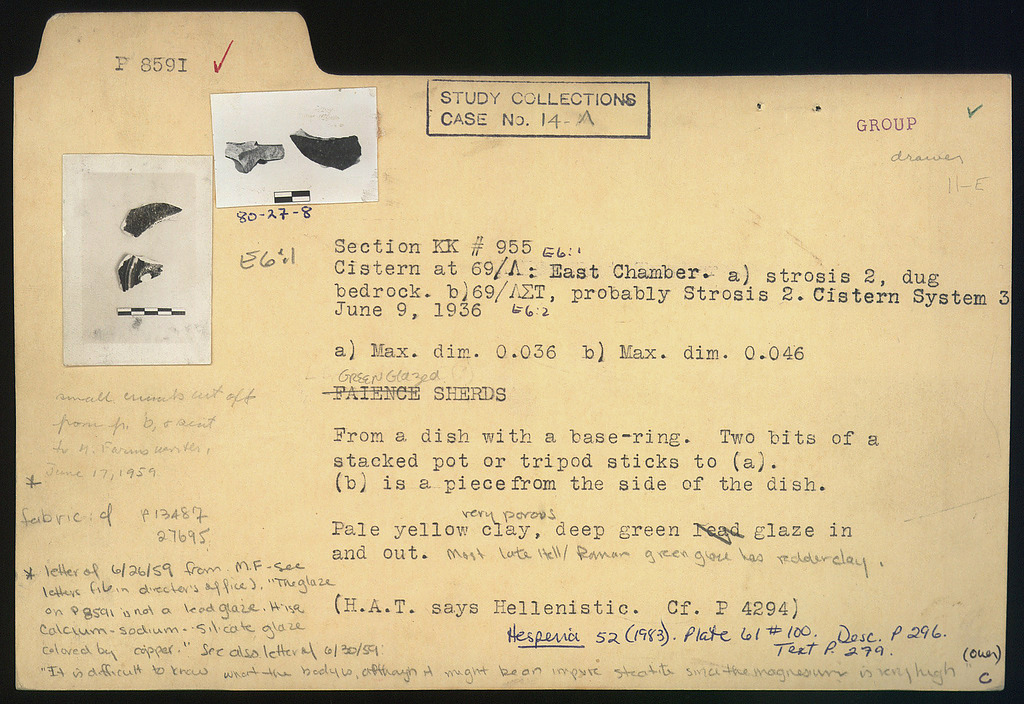 P 8591
STUDY COLLECTIONS
CASE No. 14-A
GROUP
drawer
11-E
80-27-8
E6:1
Section KK # 955 E6:1
Cistern at 69/Λ: East Chamber. a) strosis 2, dug
bedrock. b)69/ΛΣΤ, probably Strosis 2. Cistern System 3
June 9, 1936 E6:2
a) Max. dim. 0.036 b) Max. dim. 0.046
GREEN Glazed
FAIENCE SHERDS
From a dish with a base-ring. Two bits of a
stacked pot or tripod sticks to (a).
(b) is a piece from the side of the dish.
very porous
Pale yellow clay, deep green lead glaze in
and out. Most late Hell/Roman green glaze has redder clay.
(H.A.T. says Hellenistic. Cf. P 4294)
Hesperia 52 (1983). Plate 61 #100. Desc. P 296.
Text P. 279.
(over)
C
small cut off
from fr. b, & sent
to M. Farnsworth,
June 17, 1959
*
fabric: cf P13487
27695
* letter of 6/26/59 from M.F - see
letters file in director's office). "The glaze
on P8591 is not a lead glaze. It is a
Calcium-sodium-silicate glaze
colored by copper." See also letter of 6/30/59:
"It is difficult to know what the body is, although it might be an impure steatite since the magnesium is very high"